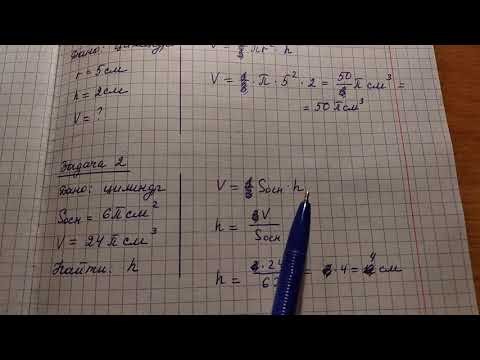 Дано: цилиндр
r = 5 см
h = 2 см
V = ?
V = 1/3 πr² · h
V = 1/3 · π · 5² · 2 = 50/3 π см³ =
= 50 π см³
Задача 2
Дано: цилиндр
Sосн = 6π см²
V = 24π см³
Найти: h
V = 1/3 Sосн · h
h = 3V / Sосн
h = 3·24 / 6 = 3 · 4 = 4 см